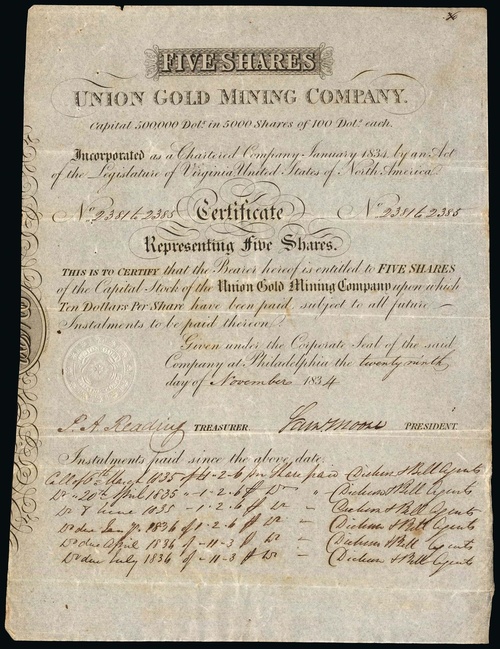 FIVE SHARES
UNION GOLD MINING COMPANY.
Capital 500,000 Dol.s in 5000 Shares of 100 Dol.s each.
Incorporated as a Chartered Company January 1834 by an Act
of the Legislature of Virginia United States of North America.
No. 2381 to 2385 Certificate No. 2381 to 2385
Representing Five Shares.
THIS IS TO CERTIFY that the Bearer hereof is entitled to FIVE SHARES
of the Capital Stock of the Union Gold Mining Company upon which
Ten Dollars Per Share have been paid, subject to all future
Instalments to be paid thereon.
Given under the Corporate Seal of the said
Company at Philadelphia the twenty ninth
day of November 1834
P. A. Reading TREASURER. Sam Moore PRESIDENT.
Instalments paid since the above date.
Call of 6th 1835 1-2-6 per Share paid Dickson & Bell Agents
Do 20th April 1835 " 1-2-6 Do " Dickson & Bell Agents
Do June 1835 - 1-2-6 Do Dickson & Bell Agents
Do due Jany 1836 1-2-6 Do Dickson & Bell Agents
Do due April 1836 -11-3 Do Dickson & Bell Agents
Do due July 1836 -11-3 Do Dickson & Bell Agents